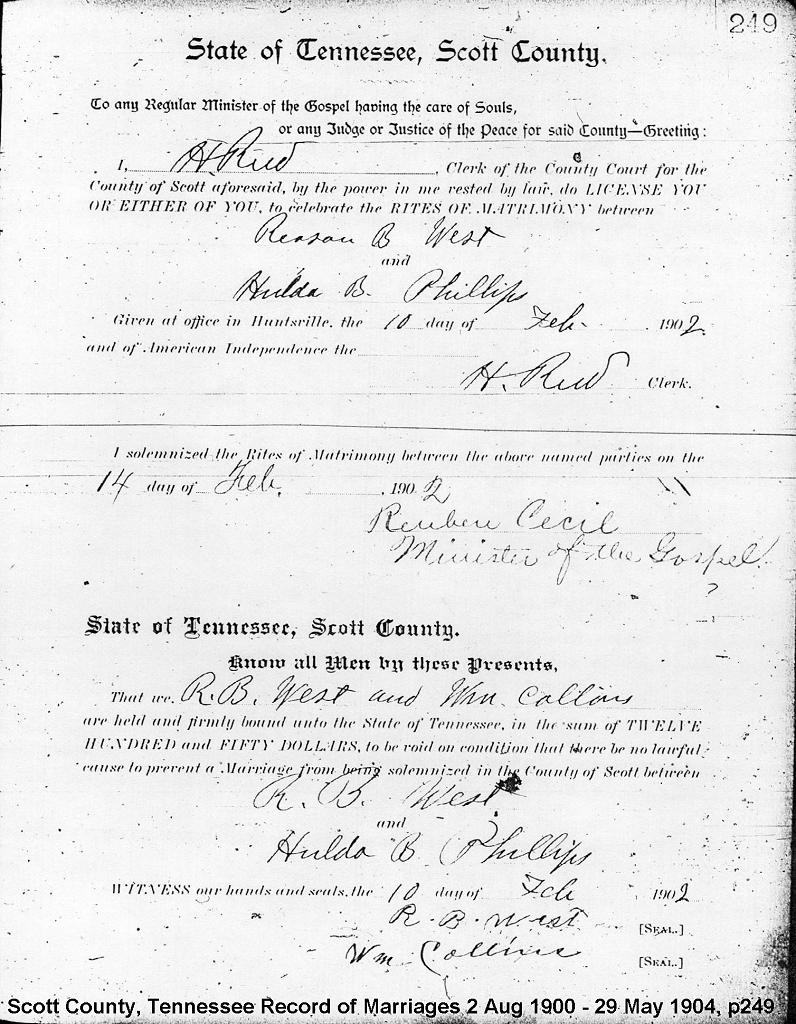 249
State of Tennessee, Scott County.
To any Regular Minister of the Gospel having the care of Souls,
or any Judge or Justice of the Peace for said County—Greeting:
I, H. Reed, Clerk of the County Court for the
County of Scott aforesaid, by the power in me vested by law, do LICENSE YOU
OR EITHER OF YOU, to celebrate the RITES OF MATRIMONY between
Reason B West
and
Hulda B. Phillips
Given at office in Huntsville, the 10 day of Feb. 1902.
and of American Independence the
H. Reed Clerk.
I solemnized the Rites of Matrimony between the above named parties on the
14 day of Feb. , 1902
Reuben Cecil
Minister of the Gospel
State of Tennessee, Scott County.
Know all Men by these Presents,
That we, R. B. West and Wm. Collins
are held and firmly bound unto the State of Tennessee, in the sum of TWELVE
HUNDRED and FIFTY DOLLARS, to be void on condition that there be no lawful
cause to prevent a Marriage from being solemnized in the County of Scott between
R. B. West
and
Hulda B. Phillips
WITNESS our hands and seals, the 10 day of Feb 1902
R. B. West [SEAL.]
Wm. Collins [SEAL.]
Scott County, Tennessee Record of Marriages 2 Aug 1900 - 29 May 1904, p249